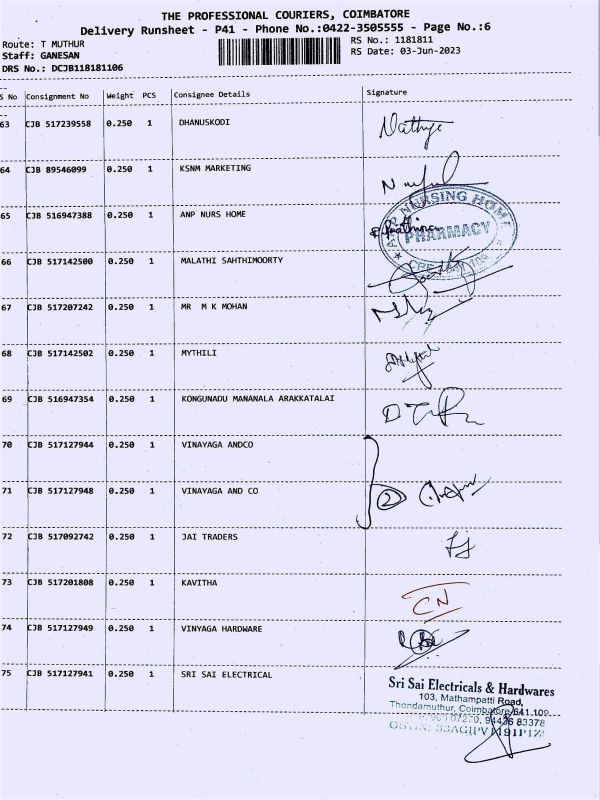 THE PROFESSIONAL COURIERS, COIMBATORE
Delivery Runsheet - P41 - Phone No.:0422-3505555 - Page No.:6
Route: T MUTHUR RS No.: 1181811
Staff: GANESAN RS Date: 03-Jun-2023
DRS No.: DCJB118181106
S No Consignment No Weight PCS Consignee Details Signature
63 CJB 517239558 0.250 1 DHANUSKODI
64 CJB 89546099 0.250 1 KSNM MARKETING
65 CJB 516947388 0.250 1 ANP NURS HOME
NURSING HOME
PHARMACY
66 CJB 517142500 0.250 1 MALATHI SAHTHIMOORTY
67 CJB 517207242 0.250 1 MR M K MOHAN
68 CJB 517142502 0.250 1 MYTHILI
69 CJB 516947354 0.250 1 KONGUNADU MANANALA ARAKKATALAI
70 CJB 517127944 0.250 1 VINAYAGA ANDCO
71 CJB 517127948 0.250 1 VINAYAGA AND CO
2
72 CJB 517092742 0.250 1 JAI TRADERS
73 CJB 517201808 0.250 1 KAVITHA
CN
74 CJB 517127949 0.250 1 VINYAGA HARDWARE
75 CJB 517127941 0.250 1 SRI SAI ELECTRICAL
Sri Sai Electricals & Hardwares
103, Mathampatti Road,
Thondamuthur, Coimbatore-641 109.
07270, 94426 83378